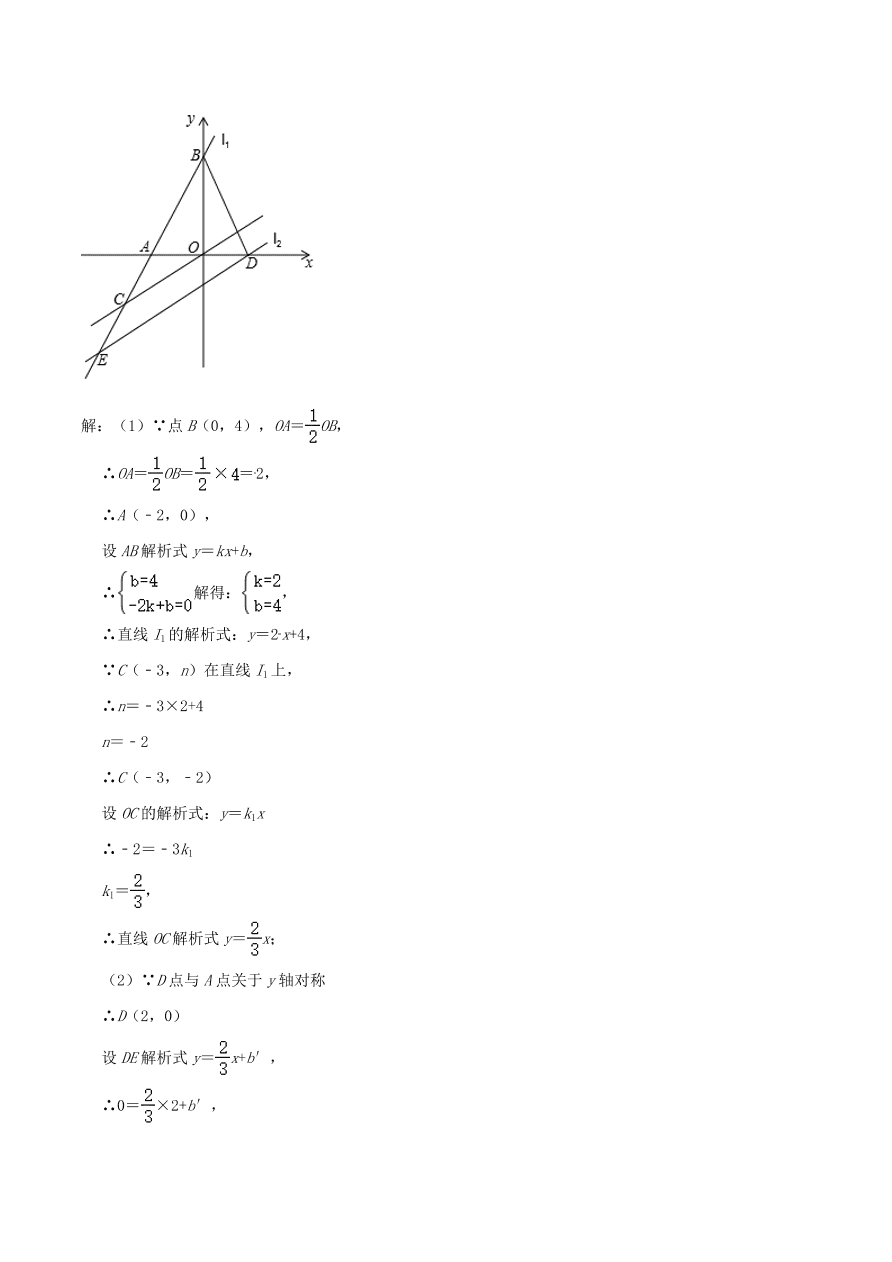 y
l₁
B
A
O
l₂
D
x
C
E
解：（1）∵点 B（0，4），OA＝1/2OB，
∴OA＝1/2OB＝1/2×4＝2，
∴A（﹣2，0），
设 AB 解析式 y＝kx+b，
∴{b=4 -2k+b=0 解得：{k=2 b=4，
∴直线 I₁ 的解析式：y＝2x+4，
∵C（﹣3，n）在直线 I₁ 上，
∴n＝﹣3×2+4
n＝﹣2
∴C（﹣3，﹣2）
设 OC 的解析式：y＝k₁x
∴﹣2＝﹣3k₁
k₁＝2/3，
∴直线 OC 解析式 y＝2/3x；
（2）∵D 点与 A 点关于 y 轴对称
∴D（2，0）
设 DE 解析式 y＝2/3x+b′，
∴0＝2/3×2+b′，